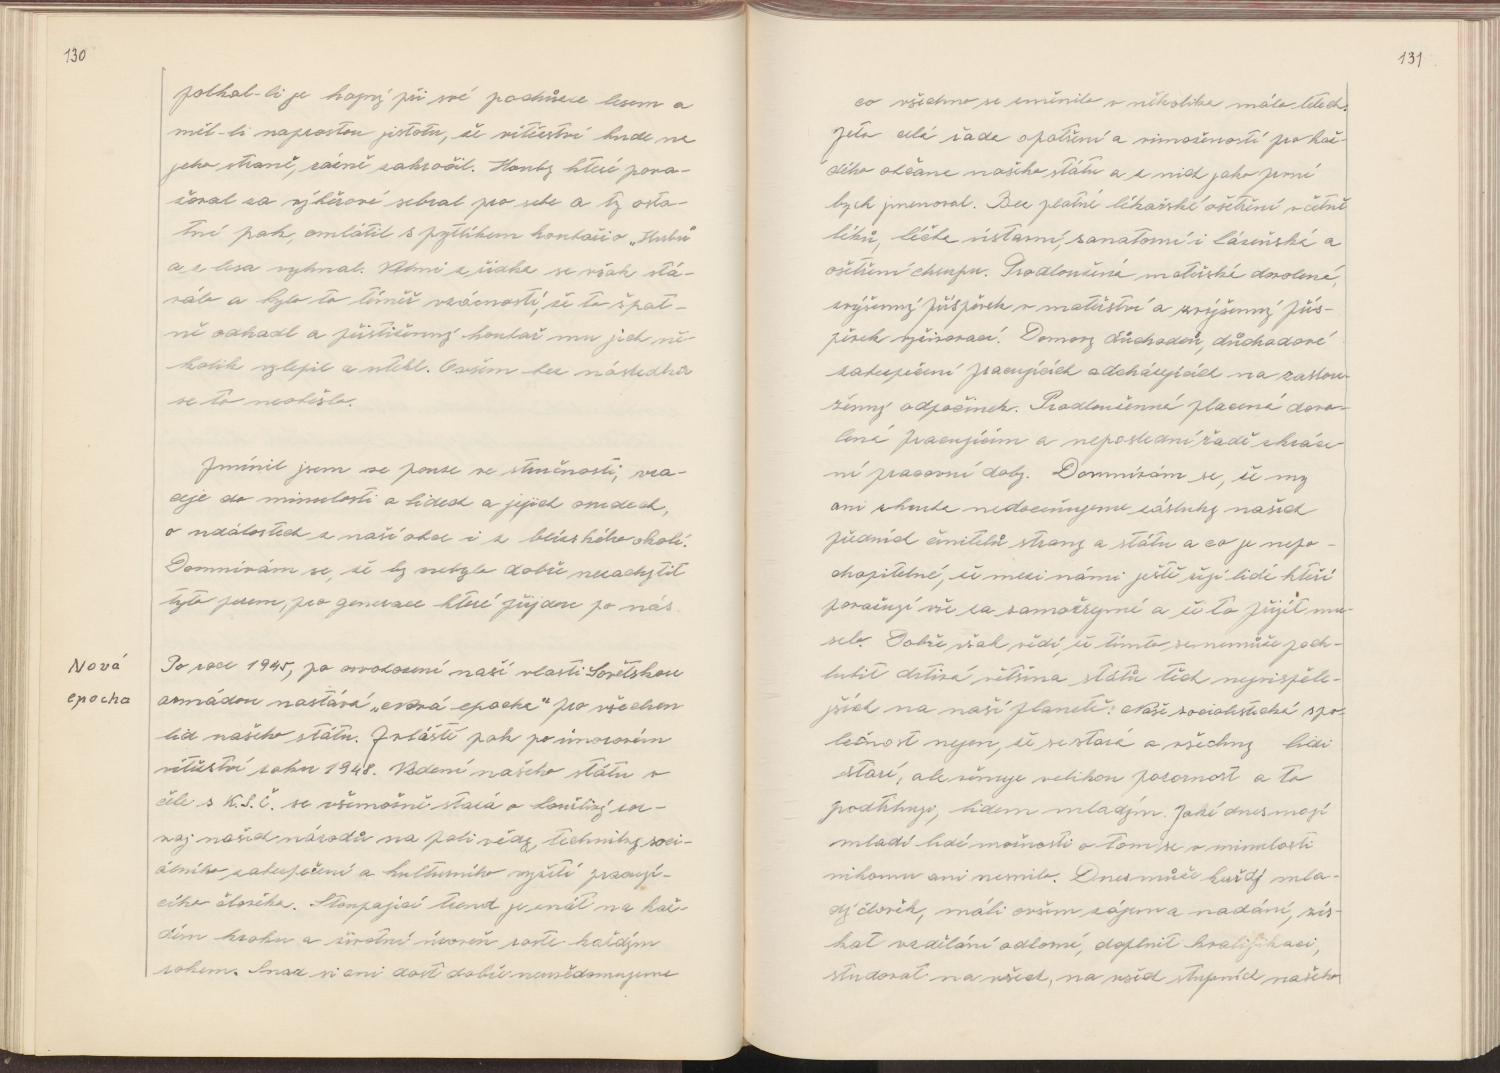 130
potkal-li je hajný při své pochůzce lesem a
měl-li naprostou jistotu, že vítězství bude na
jeho straně, začně zakročil. Houby které pova-
žoval za výběrové sebral pro sebe a ty osta-
tní pak, omlátil s pytlíkem houbaři o „Hubu"
a z lesa vyhnal. Velmi z řídka se však stá-
válo a bylo to téměř vzácností, že to špat-
ně odhadl a přistižený houbař mu jich ně-
kolik vylepil a utekl. Ovšem bez následků
se to neobešlo.
Zmínil jsem se pouze ve stručnosti, vra-
ceje do minulosti a lidech a jejich osudech,
o událostech z naší obce i z blízkého okolí.
Domnívám se, že by nebylo dobře nezachytit
tyto pérem, pro generace které přijdou po nás.
Nová
epocha
Po roce 1945, po osvobození naší vlasti Sovětskou
armádou nastává „nová epocha" pro všechen
lid našeho státu. Zvláště pak po únorovém
vítězství roku 1948. Vedení našeho státu v
čele s K.S.Č. se všemožně stará o součilý roz-
voj našich národů na poli vědy, techniky, soci-
álního zabezpečení a kulturního vyžití pracují-
cího člověka. Stoupající trend je znát na kaž-
dém kroku a životní úroveň roste každým
rokem. Snad si ani dost dobře neuvědomujeme
131
co všechno se změnilo v několika málo létech.
Je to celá řada opatření a vymožeností pro kaž-
dého občana našeho státu a z nich jako první
bych jmenoval. Bez platné lékařské ošetření včetně
léků, léčba ústavní, sanatorní i lázeňská a
ošetření chrupu. Prodloužená mateřská dovolená,
zvýšenný příspěvek v mateřství a zvýšenný přís-
pěvek vychovací. Domovy důchodců, důchodové
zabezpečení pracujících odcházejících na zaslou-
ženný odpočinek. Prodlouženná placená dovo-
lená pracujícím a neposlední řadě zkráce-
ní pracovní doby. Domnívám se, že my
ani zhruba nedoceňujeme zásluhy našich
předních činitelů strany a státu a co je nepo-
chopitelné, že mezi námi ještě žijí lidé kteří
považují vše za samozřejmé a že to přijít mu-
selo. Dobře však vědí, že tímto se nemůže poch-
lubit drtivá většina států těch nejvispěle-
jších na naší planetě. Naše socialistická spo-
lečnost nejen, že se stará a všechny lidi
staré, ale věnuje velikou pozornost a to
podtrhuji, lidem mladým. Jaké dnes mají
mladí lidé možnosti o tom se v minulosti
nikomu ani nesnilo. Dnes může každý mla-
dý člověk, máli ovšem zájem a nadání, zís-
kat vzdělání odborné, doplnit kvalifikaci,
studovat na všech, na všech stupních našeho